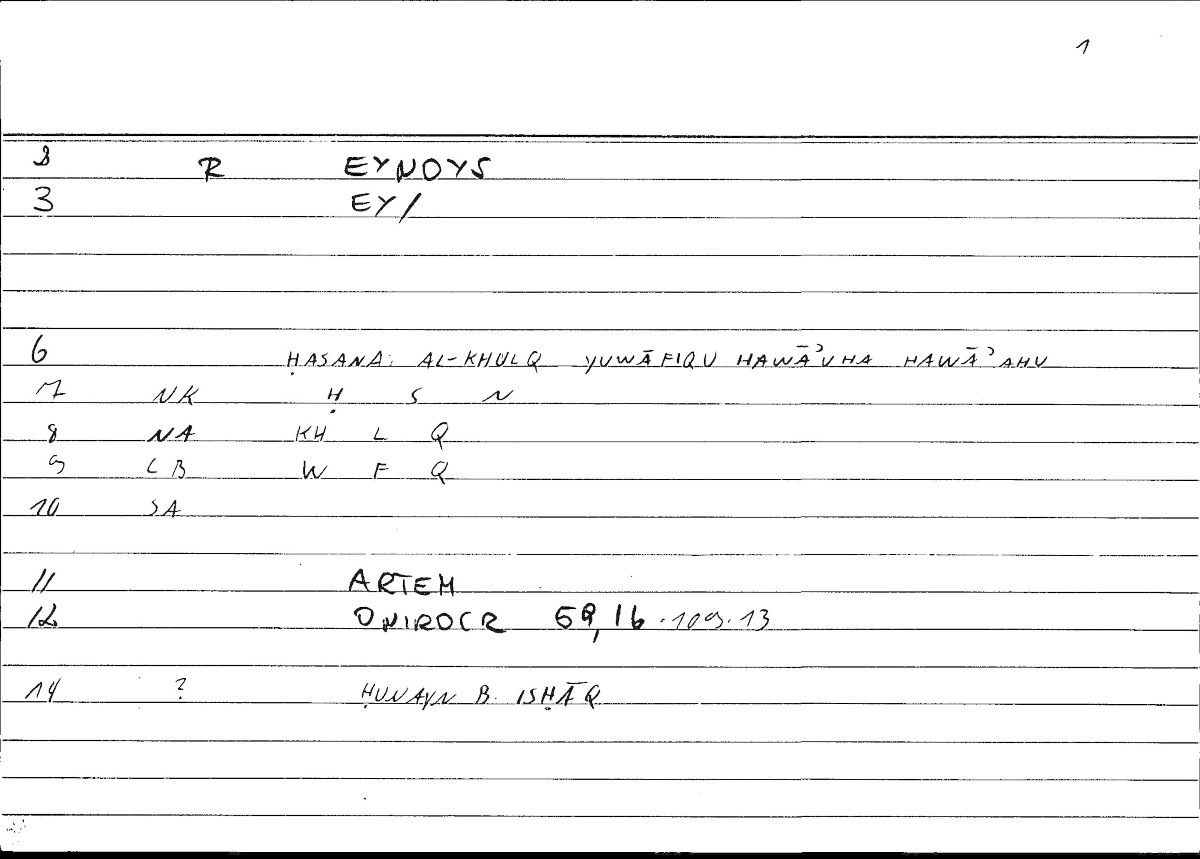 1
2 R EYNOYS
3 EY/
6 ḤASANA: AL-KHULQ YUWĀFIQU HAWĀʾUHA HAWĀʾAHU
7 NK Ḥ S N
8 NA KH L Q
9 LB W F Q
10 SA
11 ARTEM
12 ONIROCR 59,16 · 109.13
14 ? ḤUNAYN B. ISḤĀQ